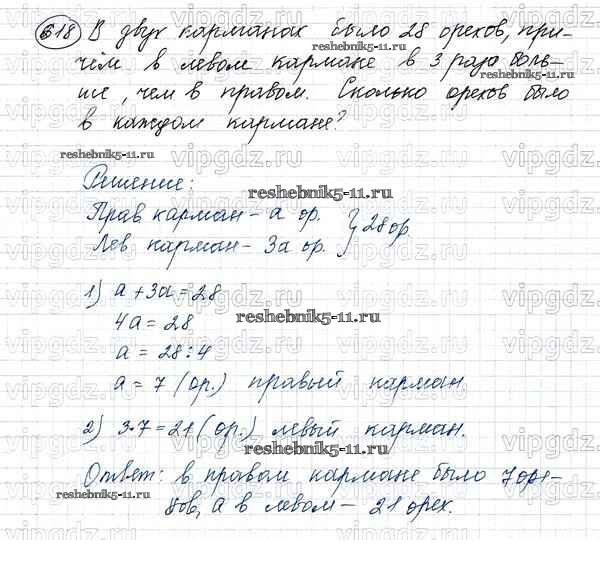 618 В двух карманах было 28 орехов, при-
чём в левом кармане в 3 раза боль-
ше, чем в правом. Сколько орехов было
в каждом кармане?
Решение:
Прав карман - а ор.
Лев. карман - 3а ор. } 28 ор
1) а + 3а = 28
4а = 28
а = 28 : 4
а = 7 (ор.) правый карман.
2) 3·7 = 21 (ор.) левый карман.
Ответ: в правом кармане было 7 оре-
хов, а в левом - 21 орех.
reshebnik5-11.ru
reshebnik5-11.ru
reshebnik5-11.ru
reshebnik5-11.ru
reshebnik5-11.ru
reshebnik5-11.ru
vipgdz.ru